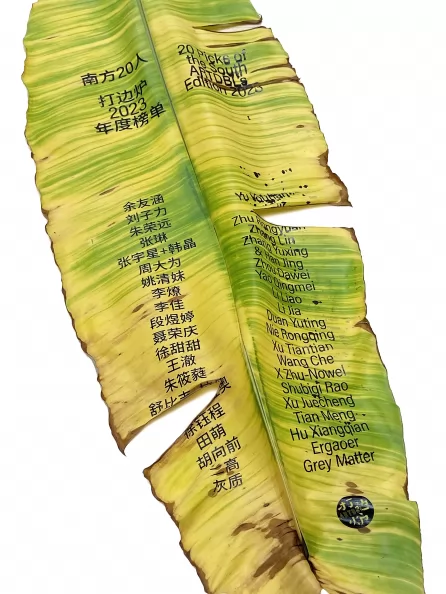 南方20人
打边炉
2023
年度榜单
20 Picks of
the South
ARTDBL's
Edition 2023
余友涵
刘子力
朱荣远
张琳
张宇星+韩晶
周大为
姚清妹
李燎
李佳
段煜婷
聂荣庆
徐甜甜
王澈
朱筱蕤
舒比吉
徐钰程
田萌
胡向前
高
灰质
Yu Youhan
Zhu Rongyuan
Zhang Lin
Zhang Yuxing
& Han Jing
Zhou Dawei
Yao Qingmei
Li Liao
Li Jia
Duan Yuting
Nie Rongqing
Xu Tiantian
Wang Che
X Zhu-Nowell
Shubigi Rao
Xu Juecheng
Tian Meng
Hu Xiangqian
Ergaoer
Grey Matter